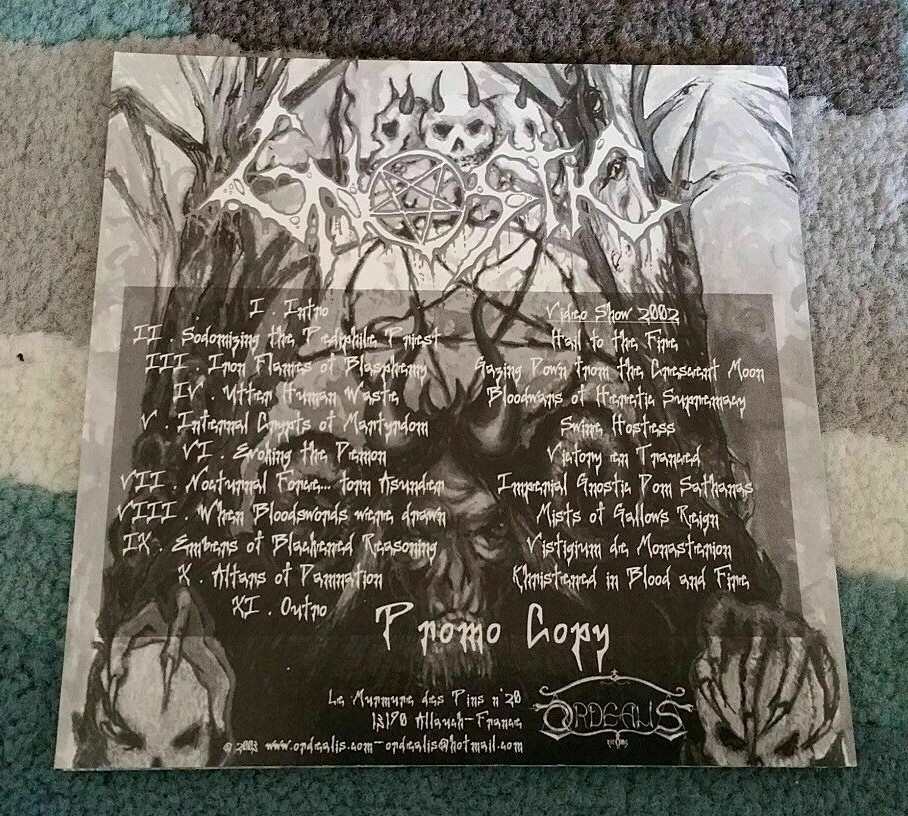 GNOSTIC
I . Intro
II . Sodomizing the Pedophile Priest
III . Iron Flames of Blasphemy
IV . Utter Human Waste
V . Internal Crypts of Martyrdom
VI . Evoking the Demon
VII . Nocturnal Force... torn Asunder
VIII . When Bloodswords were drawn
IX . Embers of Blackened Reasoning
X . Altars of Damnation
XI . Outro
Video Show 2002
Hail to the Fire
Gazing Down from the Crescent Moon
Bloodwars of Heretic Supremacy
Swine Hostess
Victory en Tranced
Imperial Gnostic Dom Sathanas
Mists of Gallows Reign
Vistigium de Monasterion
Khristened in Blood and Fire
Promo Copy
Le Murmure des Pins n°20
13190 Allauch-France
© 2003 www.ordealis.com-ordealis@hotmail.com
ORDEALIS
records